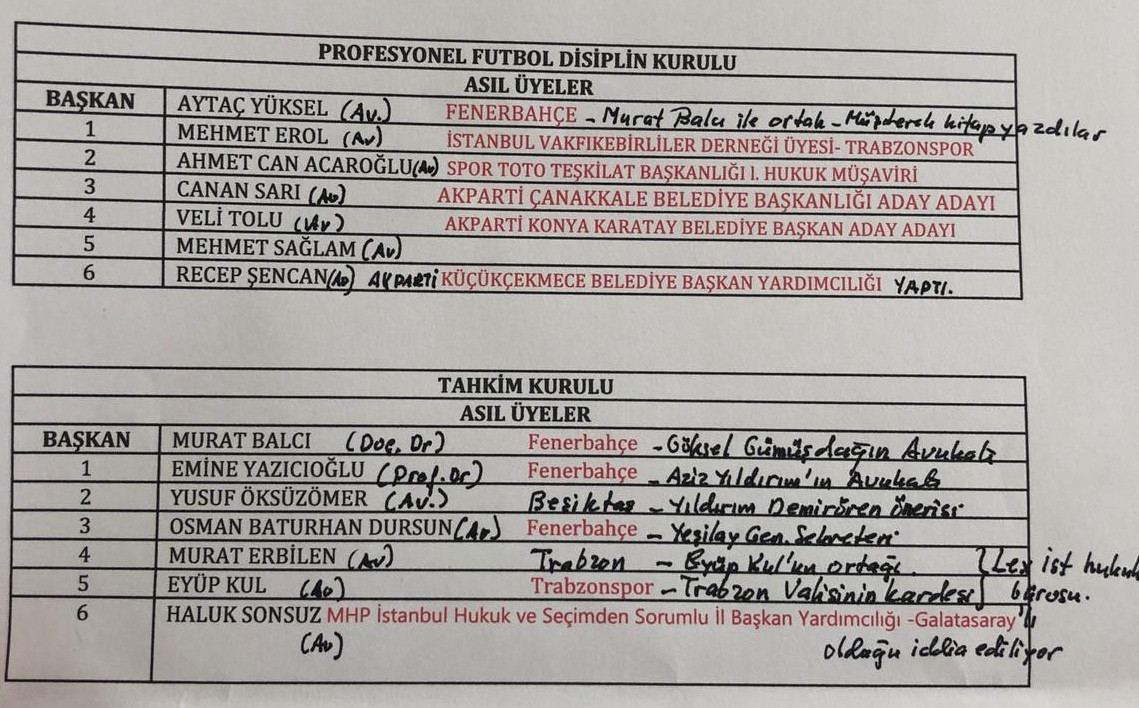 PROFESYONEL FUTBOL DİSİPLİN KURULU
ASIL ÜYELER
BAŞKAN AYTAÇ YÜKSEL (Av.) FENERBAHÇE - Murat Balcı ile ortak - Müşterek kitap yazdılar
1 MEHMET EROL (Av) İSTANBUL VAKFIKEBİRLİLER DERNEĞİ ÜYESİ- TRABZONSPOR
2 AHMET CAN ACAROĞLU (Av) SPOR TOTO TEŞKİLAT BAŞKANLIĞI I. HUKUK MÜŞAVİRİ
3 CANAN SARI (Av) AKPARTİ ÇANAKKALE BELEDİYE BAŞKANLIĞI ADAY ADAYI
4 VELİ TOLU (Av) AKPARTİ KONYA KARATAY BELEDİYE BAŞKAN ADAY ADAYI
5 MEHMET SAĞLAM (Av)
6 RECEP ŞENCAN (Av) AKPARTİ KÜÇÜKÇEKMECE BELEDİYE BAŞKAN YARDIMCILIĞI YAPTI.
TAHKİM KURULU
ASIL ÜYELER
BAŞKAN MURAT BALCI (Doç. Dr) Fenerbahçe - Göksel Gümüşdağın Avukatı
1 EMİNE YAZICIOĞLU (Prof. Dr) Fenerbahçe - Aziz Yıldırım'ın Avukatı
2 YUSUF ÖKSÜZÖMER (Av.) Beşiktaş - Yıldırım Demirören Önerisi
3 OSMAN BATURHAN DURSUN (Av) Fenerbahçe - Yeşilay Gen. Sekreteri
4 MURAT ERBİLEN (Av) Trabzon - Eyüp Kul'un ortağı } Lex ist hukuk
5 EYÜP KUL (Av) Trabzonspor - Trabzon Valisinin kardeşi bürosu.
6 HALUK SONSUZ MHP İstanbul Hukuk ve Seçimden Sorumlu İl Başkan Yardımcılığı -Galatasaray'lı
(Av) olduğu iddia ediliyor